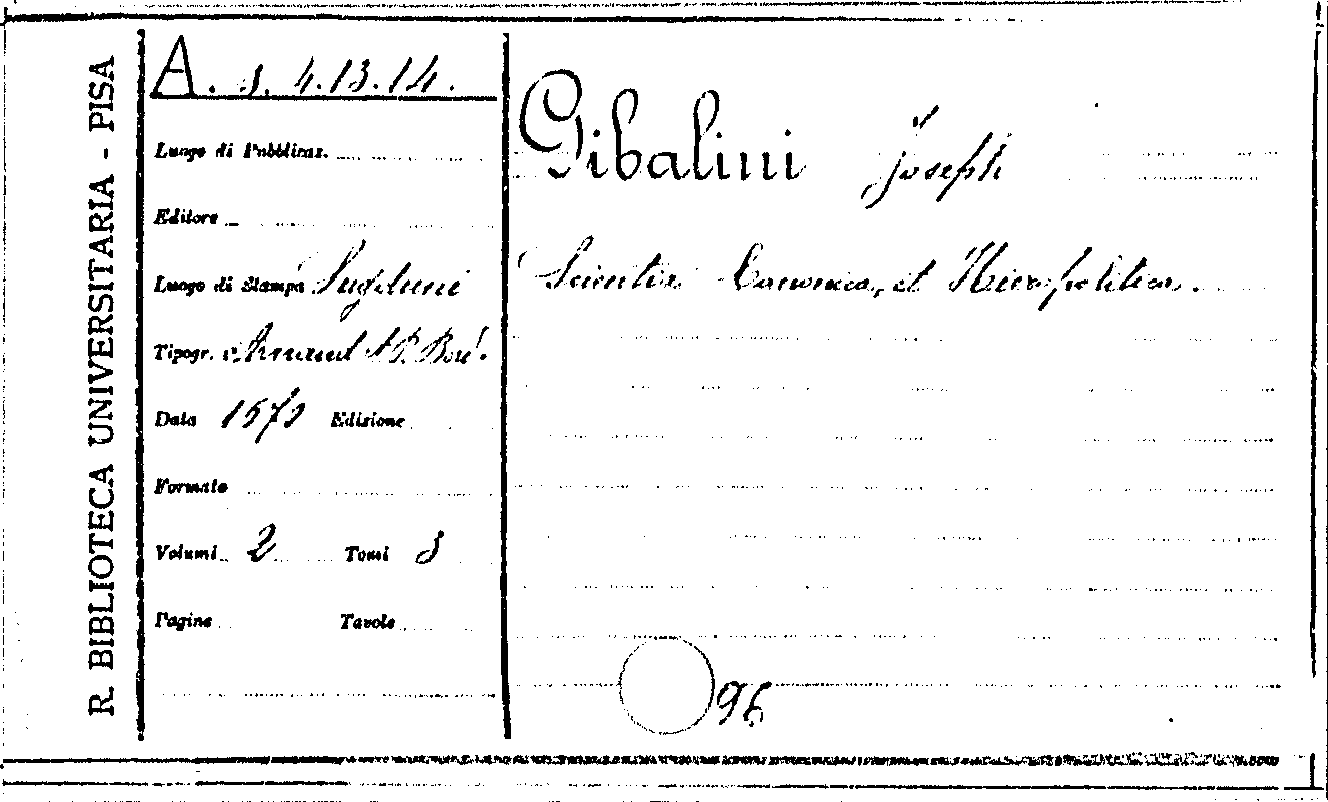 R. BIBLIOTECA UNIVERSITARIA - PISA
A. s. 4.13.14.
Luogo di Pubblicaz.
Editore
Luogo di Stampa Lugduni
Tipogr. Arnaud
Data Edizione
Formato
Volumi 2 Tomi 3
Pagine Tavole
Gibalini Joseph
Scientia Canonica, et Hieropolitica.
96